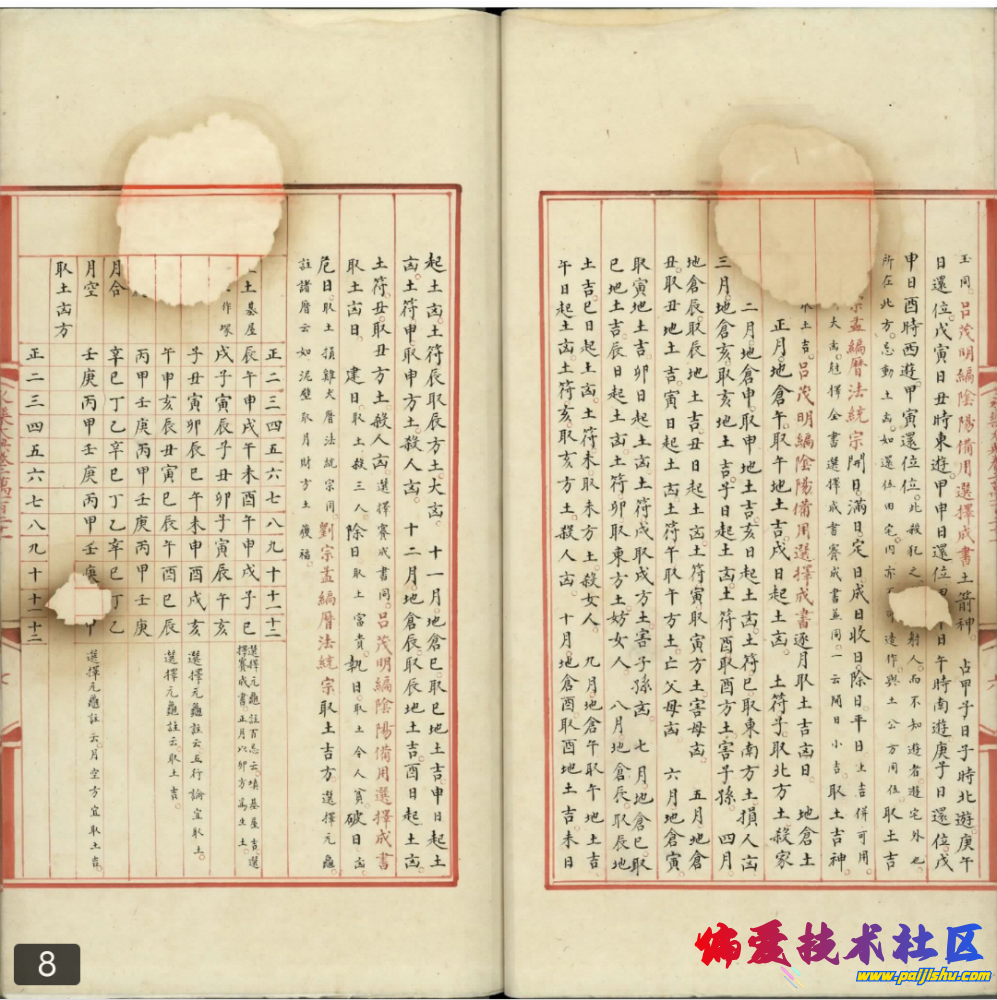 玉同。呂茂明編陰陽備用選擇成書土箭神。占甲子日子時北遊。庚午
日還位。戊寅日丑時東遊。甲申日還位。午時南遊。庚子日還位。戊
申日酉時西遊。甲寅還位。位。此殺犯之射人。而不知遊者遊宅外也。
所在北方。忌動土凶。如還位田宅。內亦遠作。與土公方同位取土吉
宗孟編曆法統宗開日。滿日。定日。成日。收日。除日。平日上吉併可用。
大凶。胜擇全書選擇成書賽成書並同。一云閉日小吉。取土吉神
土吉。呂茂明編陰陽備用選擇成書逐月取土吉凶日。地倉土
正月。地倉午。取午地土吉。戌日起土凶。土符子。取北方土。殺家
二月。地倉申。取申地土吉。亥日起土凶。土符巳。取東南方土。損人凶
三月。地倉亥。取亥地土吉。子日起土凶。土符酉。取酉方土。害子孫。四月。
地倉辰。取辰地土吉。丑日起土凶。土符寅。取寅方土。害母凶。五月地倉
丑。取丑地土吉。寅日起土凶。土符午。取午方土。亡父母凶。六月地倉寅。
取寅地土吉。卯日起土凶。土符戌。取戌方土。害子孫凶。七月地倉巳。取
巳地土吉。辰日起土凶。土符卯。取東方土。妨女人。八月地倉辰。取辰地
土吉。巳日起土凶。土符未。取未方土。殺女人。九月。地倉午。取午地土吉。
午日起土凶。土符亥。取亥方土。殺人凶。十月。地倉酉。取酉地土吉。未日
起土凶。土符辰。取辰方土。大凶。十一月。地倉巳。取巳地土吉。申日起土
凶。土符申。取申方土。殺人凶。十二月。地倉辰。取辰地土吉。酉日起土凶。
土符丑。取丑方土。殺人凶。選擇賽成書同。呂茂明編陰陽備用選擇成書
取土凶日。建日取土殺三人。除日取土富貴。執日取土令人貧。破日凶
危日。取土損雞犬。曆法統宗同。劉宗孟編曆法統宗取土吉方。選擇元龜。
註諸曆云。如泥壁取月財方土獲福。
正二三四五六七八九十十一十二
土墓屋辰午申戌子午未酉午申戌子巳
選擇元龜註百忌云。墳墓屋吉。選擇賽成書。正月以卯方為生土。
作塚戌子寅辰子丑卯子寅辰午亥
子丑寅卯辰巳午未申酉戌亥
選擇元龜註云。五行論宜取土。
午申亥辰丑寅巳辰午酉巳辰
選擇元龜註云。取土吉。
丙甲壬庚丙甲壬庚丙甲壬庚
月合辛巳丁乙辛巳丁乙辛巳丁乙
月空壬庚丙甲壬庚丙甲壬庚甲
選擇元龜註云。月空方宜取土吉。
取土凶方正二三四五六七八九十十一十二
8
偏爱技术社区
www.paijishu.com